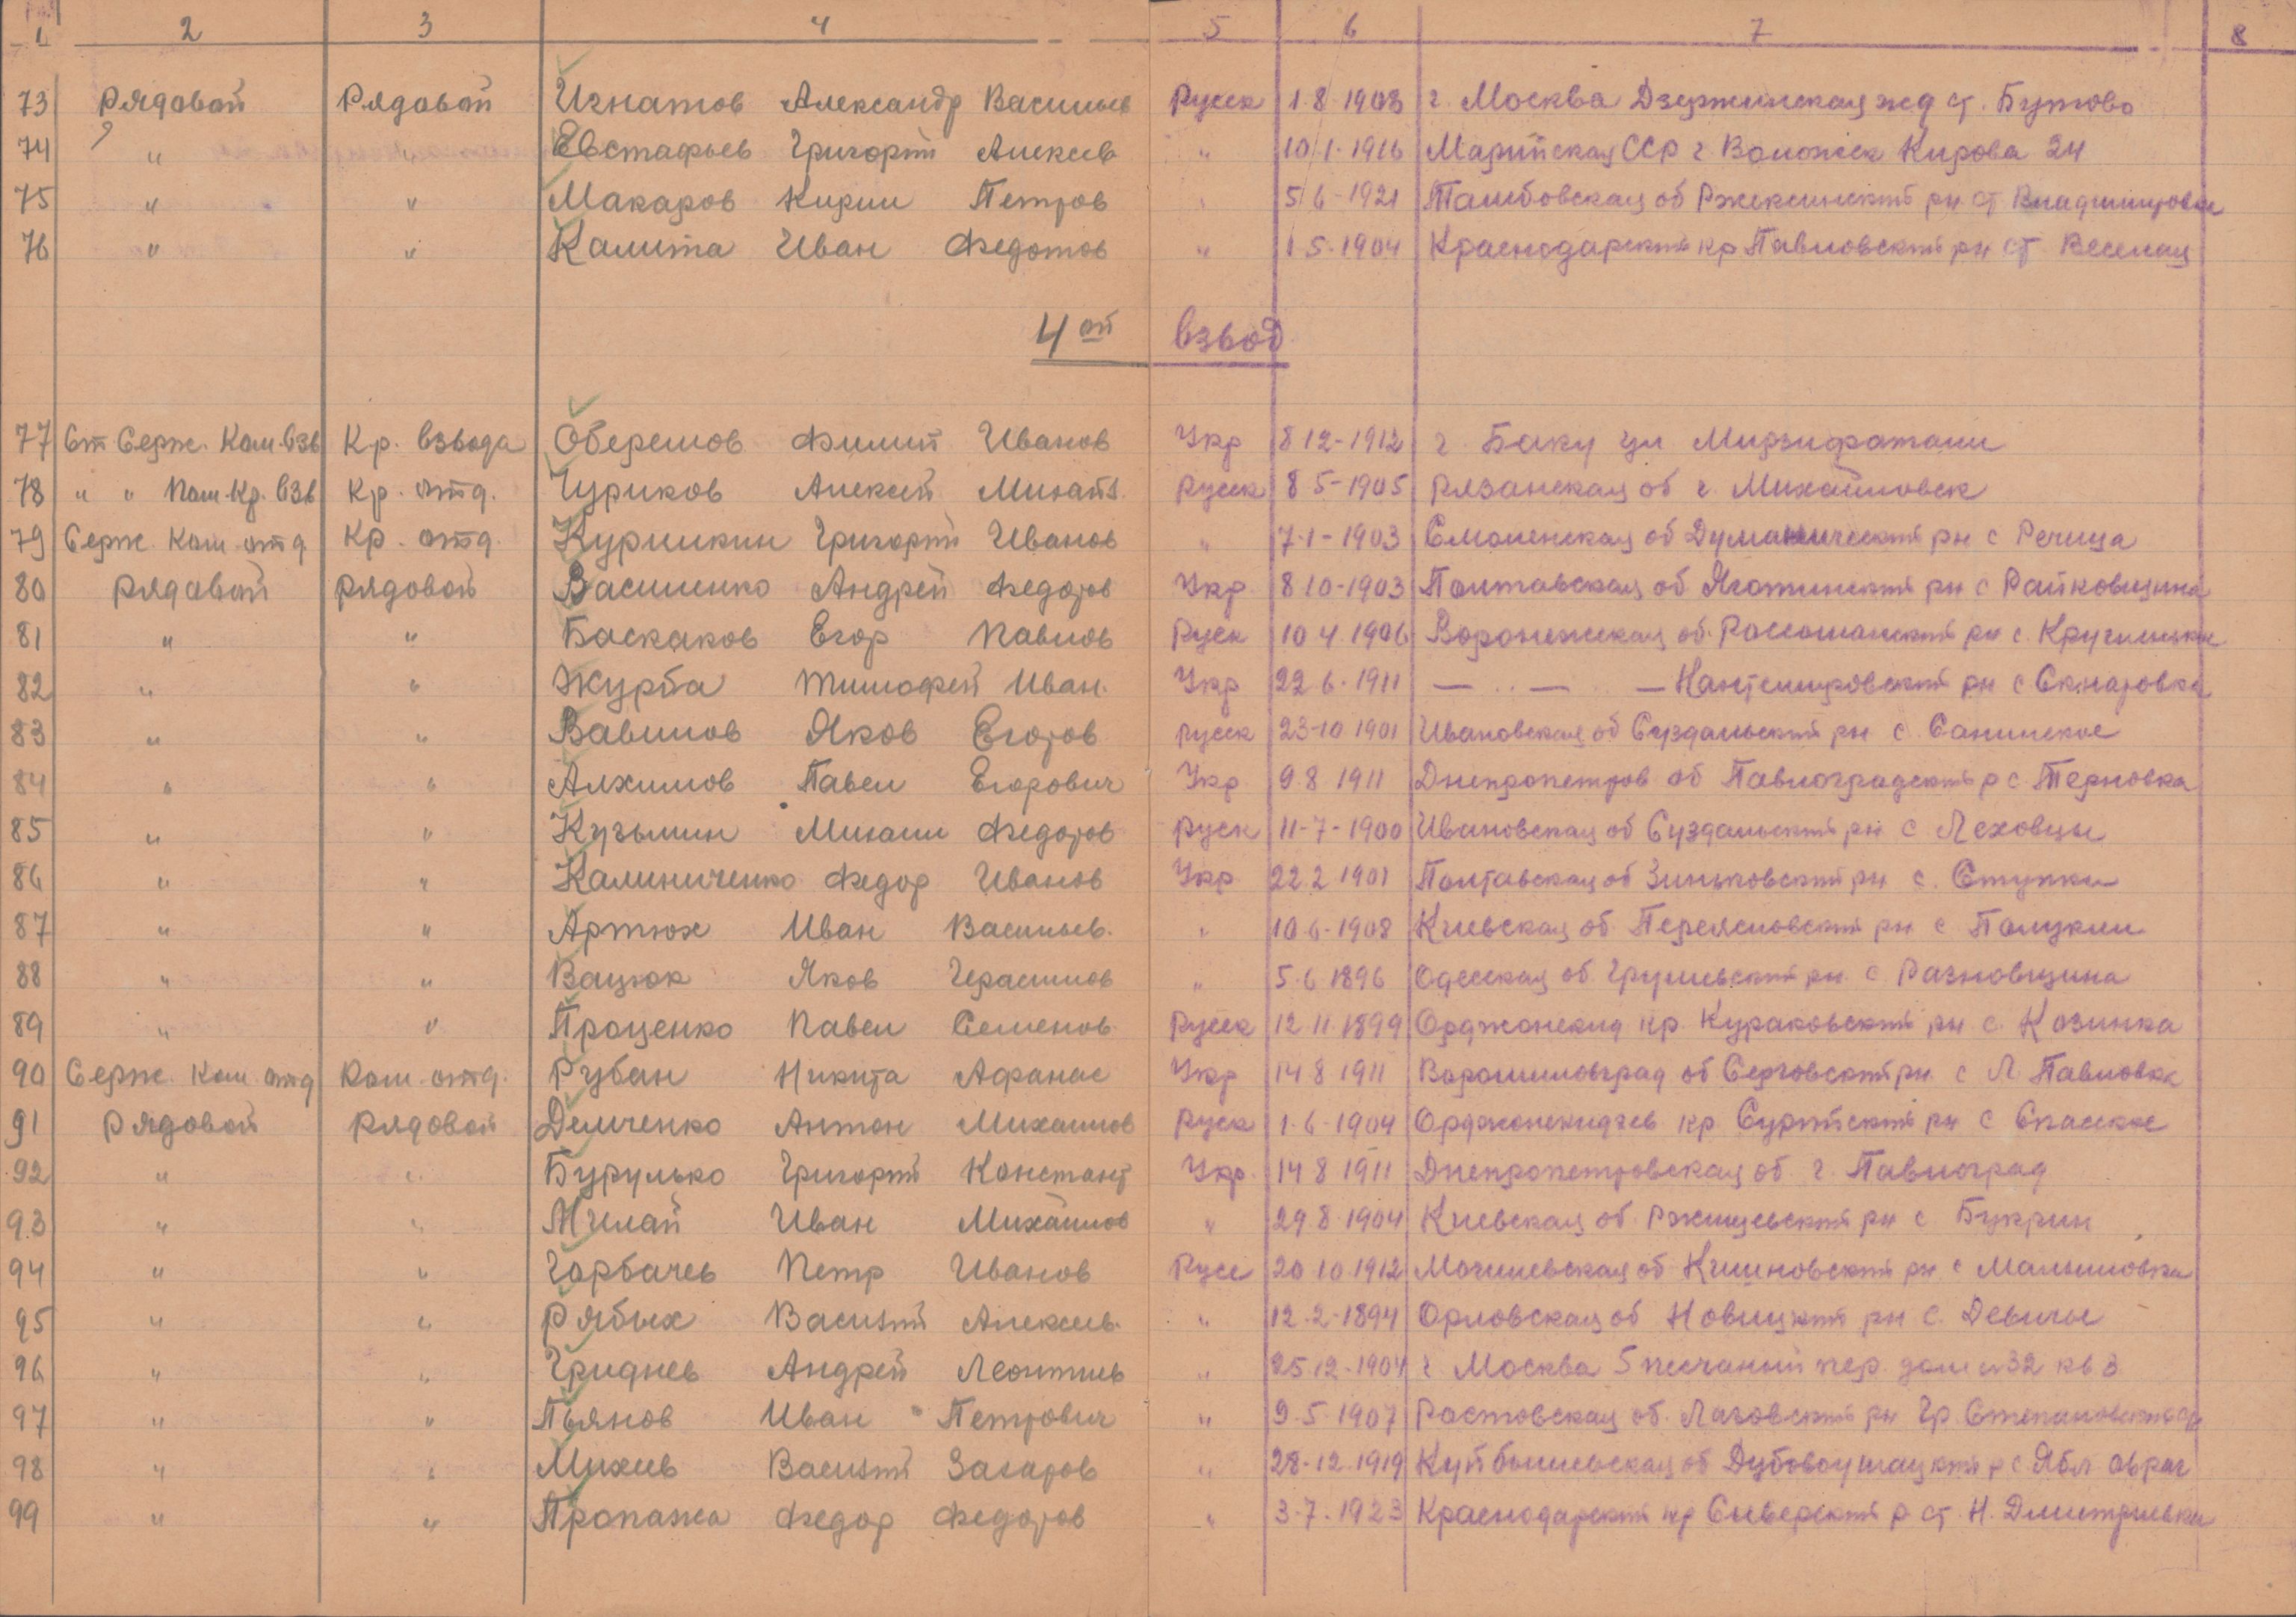 1 2 3 4 5 6 7 8
73 Рядовой Рядовой Игнатов Александр Васильев Русск 1.8.1908 г. Москва Дзержинская жд ст. Бутово
74 " " Евстафьев Григорий Алексеев " 10.1.1916 Марийская ССР г. Воложск Кирова 24
75 " " Макаров Кирилл Петров " 5 6-1921 Тамбовская об Ржаксинский рн ст Владимировка
76 " " Калита Иван Федотов " 1-5-1904 Краснодарский кр Павловский рн ст Веселая
4ой взвод
77 Ст Серж. Ком. Взв Кр. взвода Оберемов Филип Иванов Укр 8 12-1912 г. Баку ул Мирзифатали
78 " " Пом. Кр. Взв Кр. отд. Чуриков Алексей Михайл. Русск 8 5-1905 Рязанская об г. Михайловск
79 Серж. Ком отд Кр. отд. Куришкин Григорий Иванов " 7-1-1903 Смоленская об Думиничский рн с Речица
80 Рядовой Рядовой Василенко Андрей Федоров Укр 8 10-1903 Полтавская об Яготинский рн с Райковщина
81 " " Баскаков Егор Павлов Руск 10 4 1906 Воронежская об. Россошанский рн с.
82 " " Журба Тимофей Иван. Укр 22 6.1911 — " — — Кантемировский рн с
83 " " Вавилов Яков Егоров Русск 23-10 1901 Ивановская об Суздальский рн с. Санинское
84 " " Алхимов Павел Егорович Укр 9 8 1911 Днепропетров об Павлоградский р с Терновка
85 " " Кузьмин Михаил Федоров Руск 11-7-1900 Ивановская об Суздальский рн с Леховцы
86 " " Калиниченко Федор Иванов Укр 22 2 1901 Полтавская об Зиньковский рн с. Ступки
87 " " Артюх Иван Васильев. " 10 6-1908 Киевская об Переясловский рн с
88 " " Вацюк Яков Герасимов " 5.6 1896 Одесская об. рн с Разновщина
89 " " Проценко Павел Семенов Русск 12 11 1899 Орджонекид кр. Кураковский рн с. Козинка
90 Серж. Ком отд Ком. отд. Рубан Никита Афанас Укр 14 8 1911 Ворошиловград об Серговский рн с Л Павловка
91 Рядовой Рядовой Демченко Антон Михайлов Руск 1.6.1904 Орджонекидзев кр рн с Спасское
92 " " Бурулько Григорий Констант Укр. 14 8 1911 Днепропетровская об. г. Павлоград
93 " " Милай Иван Михайлов " 29 8.1904 Киевская об. Ржищевский рн с Букрин
94 " " Горбачев Петр Иванов Русс 20 10 1912 Могилевская об Климовский рн с Малышовка
95 " " Рябых Василий Алексеев. " 12.2-1894 Орловская об рн с. Девичье
96 " " Гриднев Андрей Леонтьев " 25 12-1904 г Москва 5 песчаный пер. дом н 32 кв 3
97 " " Пьянов Иван Петрович " 9.5.1907 Ростовская об. рн Гр.
98 " " Михеев Василий Захаров " 28-12.1919 Куйбышевская об р с Ябл овраг
99 " " Пропажа Федор Федоров " 3-7.1923 Краснодарский кр Северский р. ст. Н. Дмитриевка